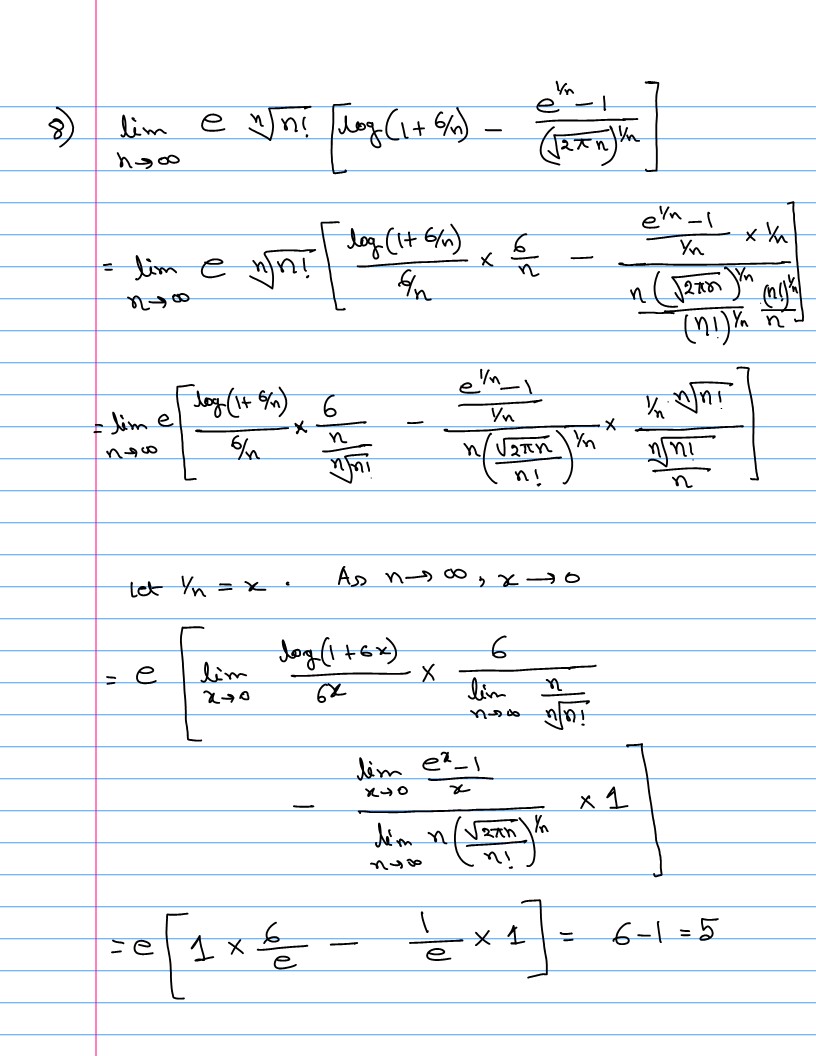 8) lim n→∞ e ⁿ√n! [ log(1+6/n) − (e^(1/n) − 1) / (√2πn)^(1/n) ]
= lim n→∞ e ⁿ√n! [ log(1+6/n) / (6/n) × 6/n − ( (e^(1/n) − 1) / (1/n) × 1/n ) / ( n(√2πn)^(1/n) / (n!)^(1/n) · (n!)^(1/n) / n ) ]
= lim n→∞ e [ log(1+6/n) / (6/n) × 6 / (n / ⁿ√n!) − ( (e^(1/n) − 1) / (1/n) ) / ( n (√2πn / n!)^(1/n) ) × ( 1/n · ⁿ√n! ) / ( ⁿ√n! / n ) ]
Let 1/n = x . As n→∞, x→0
= e [ lim x→0 log(1+6x) / 6x × 6 / ( lim n→∞ n / ⁿ√n! )
− ( lim x→0 (e^x − 1) / x ) / ( lim n→∞ n (√2πn / n!)^(1/n) ) × 1 ]
= e [ 1 × 6/e − 1/e × 1 ] = 6 − 1 = 5